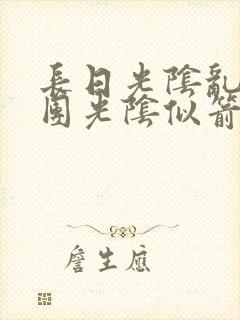 長日光陰亂
團光陰似箭
詹生應